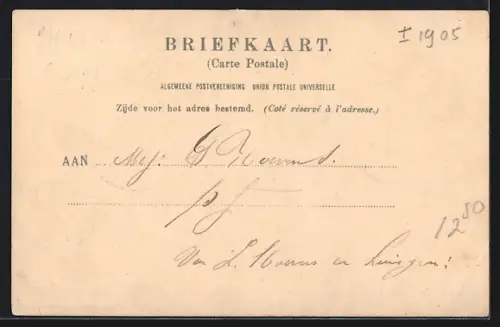 ± 1905
BRIEFKAART.
(Carte Postale)
ALGEMEENE POSTVEREENIGING UNION POSTALE UNIVERSELLE
Zijde voor het adres bestemd. (Coté réservé à l'adresse.)
AAN Mej: G
p f
12 50
Van L. en